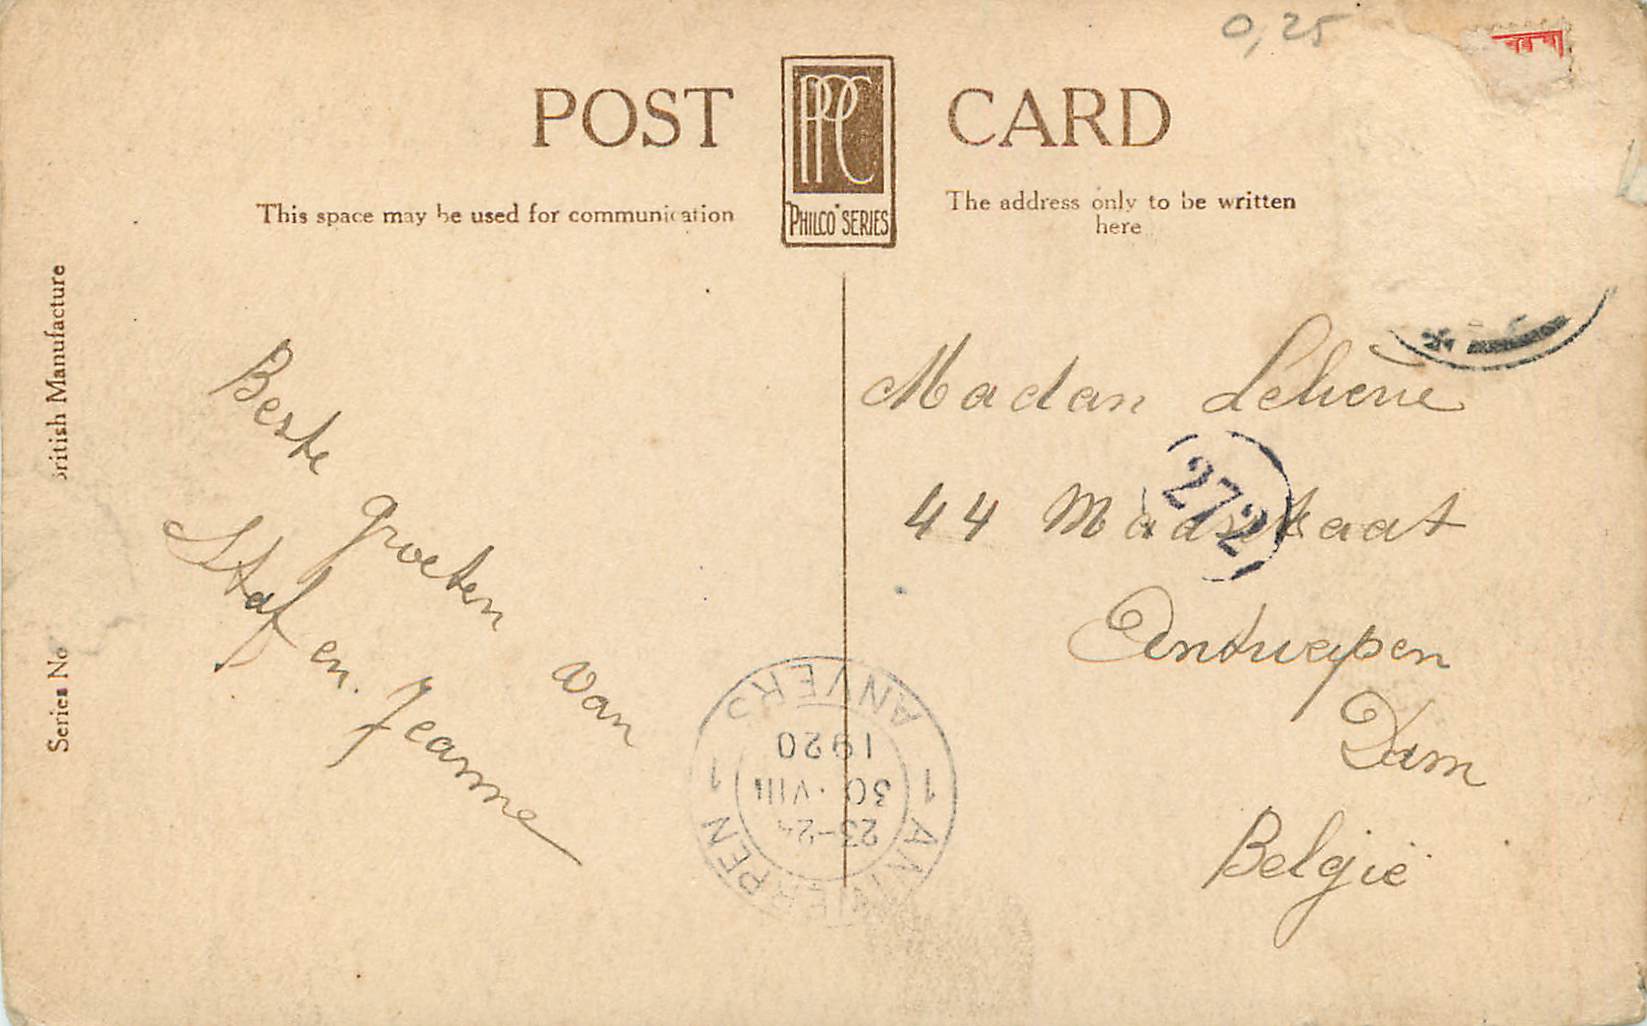 0,25
POST CARD
PPC
"PHILCO" SERIES
This space may be used for communication
The address only to be written
here
British Manufacture
Series No
Beste groeten van
Staf en. Jeanne
Madan
44
272
Antwerpen
Dam
België
1 ANTWERPEN 1
ANVERS
23-24
30·VIII
1920